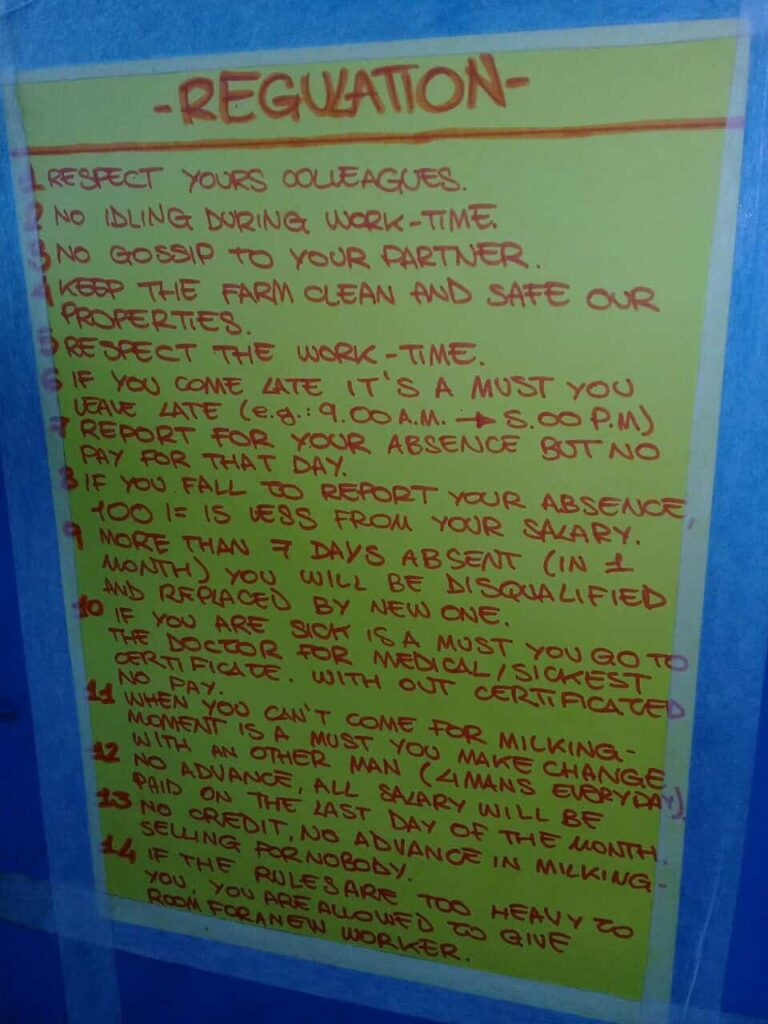 -REGULATION-
1 RESPECT YOURS COLLEAGUES.
2 NO IDLING DURING WORK-TIME.
3 NO GOSSIP TO YOUR PARTNER.
4 KEEP THE FARM CLEAN AND SAFE OUR
PROPERTIES.
5 RESPECT THE WORK-TIME.
6 IF YOU COME LATE IT'S A MUST YOU
LEAVE LATE (e.g.: 9.00 A.M. → 5.00 P.M)
7 REPORT FOR YOUR ABSENCE BUT NO
PAY FOR THAT DAY.
8 IF YOU FALL TO REPORT YOUR ABSENCE,
100 /= IS LESS FROM YOUR SALARY.
9 MORE THAN 7 DAYS ABSENT (IN 1
MONTH) YOU WILL BE DISQUALIFIED
AND REPLACED BY NEW ONE.
10 IF YOU ARE SICK IS A MUST YOU GO TO
THE DOCTOR FOR MEDICAL/SICKEST
CERTIFICATE. WITH OUT CERTIFICATED
NO PAY.
11 WHEN YOU CAN'T COME FOR MILKING-
MOMENT IS A MUST YOU MAKE CHANGE
WITH AN OTHER MAN (4 MANS EVERYDAY)
12 NO ADVANCE, ALL SALARY WILL BE
PAID ON THE LAST DAY OF THE MONTH.
13 NO CREDIT, NO ADVANCE IN MILKING-
SELLING FOR NOBODY.
14 IF THE RULES ARE TOO HEAVY TO
YOU, YOU ARE ALLOWED TO GIVE
ROOM FOR A NEW WORKER.